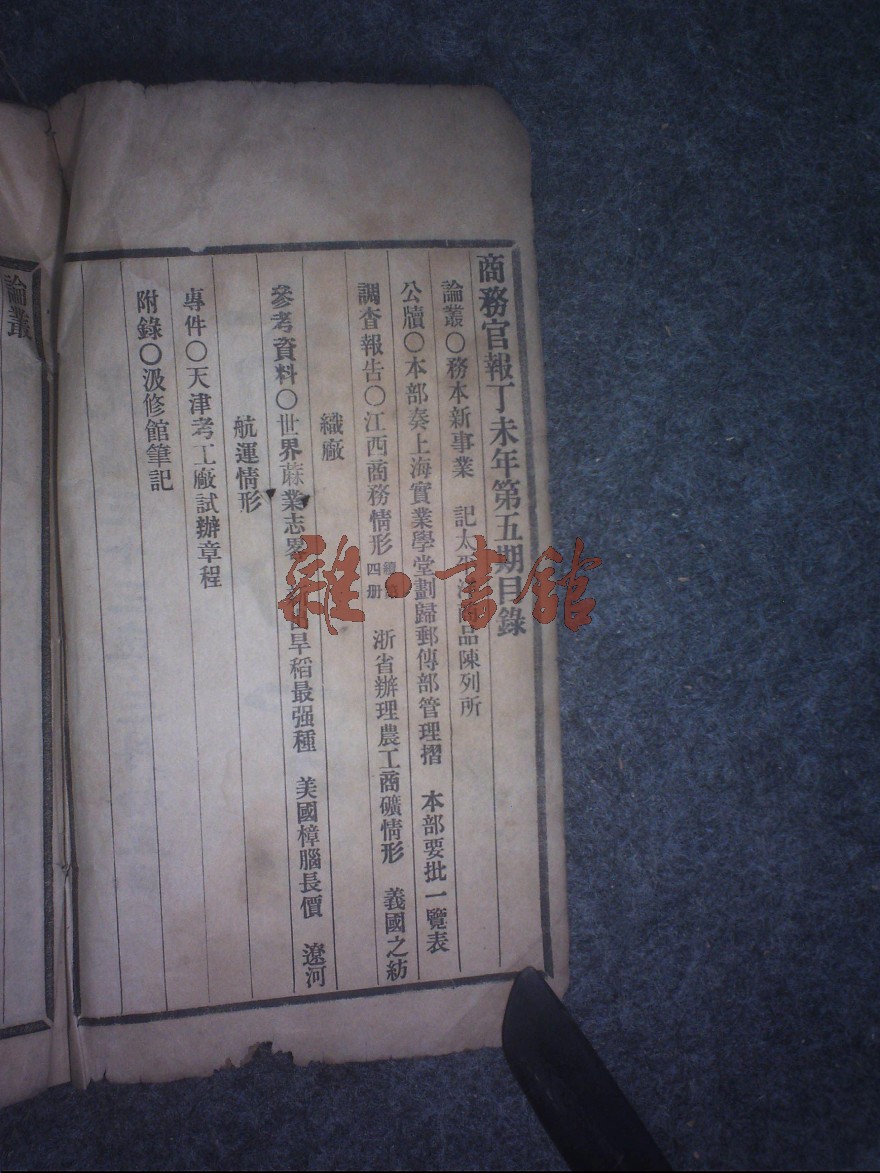 商務官報丁未年第五期目錄
論叢○務本新事業　記太平洋商品陳列所
公牘○本部奏上海實業學堂劃歸郵傳部管理摺　本部要批一覽表
調查報告○江西商務情形 四册　浙省辦理農工商礦情形　義國之紡
織廠
參考資料○世界蔴業志畧　旱稻最强種　美國樟腦長價　遼河
航運情形
專件○天津考工廠試辦章程
附錄○汲修館筆記
論叢
雜·書館